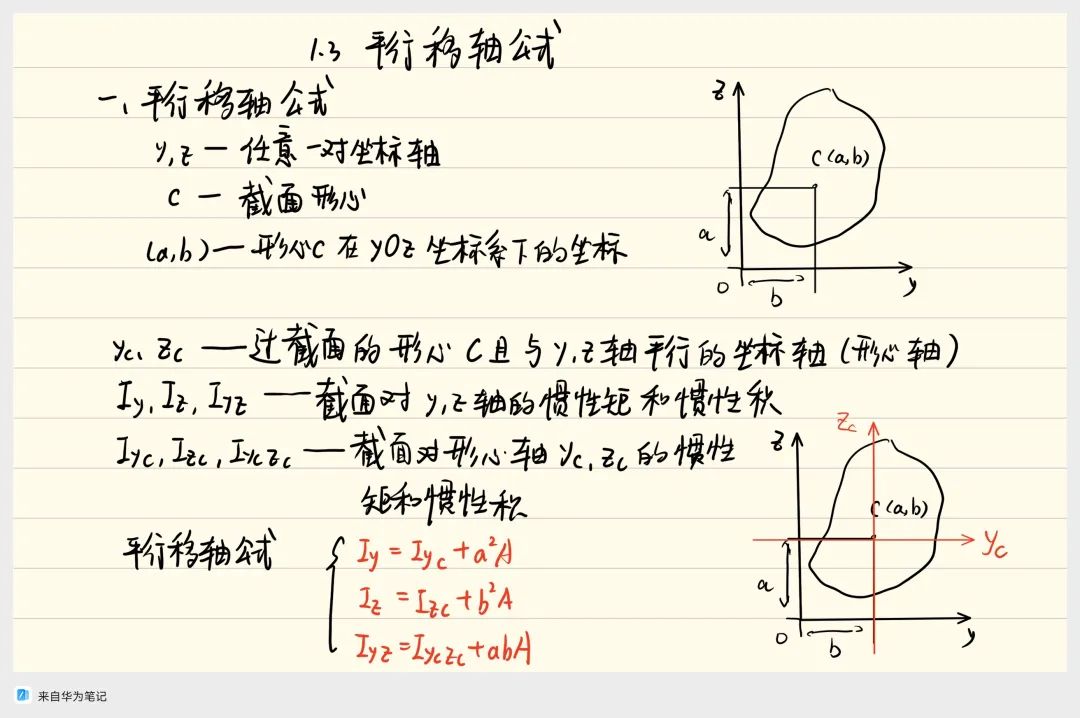 1.3 平行移轴公式
一、平行移轴公式
y,z — 任意一对坐标轴
C — 截面形心
(a,b) — 形心C在yOz坐标系下的坐标
z
C(a,b)
a
O
b
y
yc、zc —— 过截面的形心C且与y,z轴平行的坐标轴(形心轴)
Iy,Iz,Iyz —— 截面对y,z轴的惯性矩和惯性积
Iyc,Izc,Iyczc —— 截面对形心轴yc,zc的惯性
矩和惯性积
平行移轴公式
Iy = Iyc + a²A
Iz = Izc + b²A
Iyz = Iyczc + abA
zc
z
C(a,b)
yc
a
O
b
y
来自华为笔记